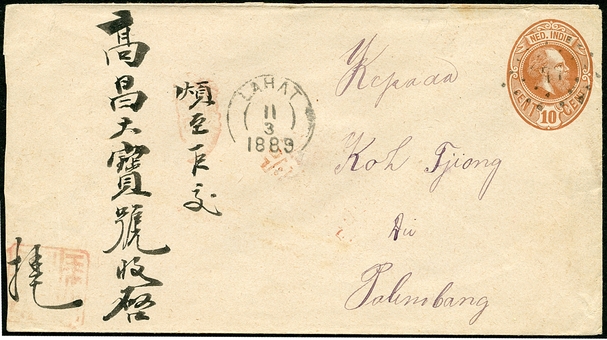 高昌大寶號收啓
煩至巨交
LAHAT
11
3
1889
NED. INDIE
CENT 10 CENT
Kepada
Koh Tjiong
Di
Palembang